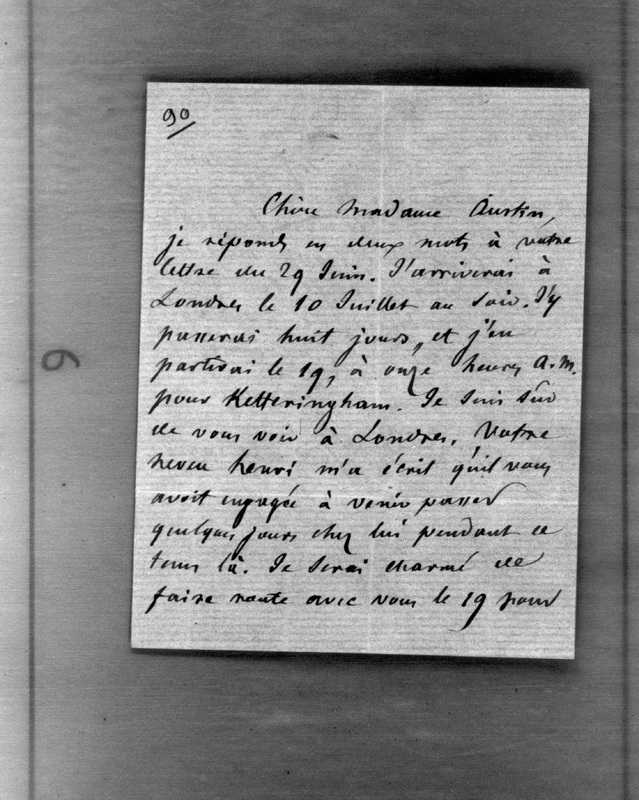 90
Chère Madame Austin,
je réponds en deux mots à votre
lettre du 29 Juin. J'arriverai à
Londres le 10 Juillet au soir. J'y
passerai huit jours, et j'en
partirai le 19, à onze heures a.m.
pour Ketteringham. Je suis sûr
de vous voir à Londres. Votre
neveu henri m'a écrit qu'il vous
avoit engagée à venir passer
quelques jours chez lui pendant ce
tems là. Je serai charmé de
faire route avec vous le 19 pour
9